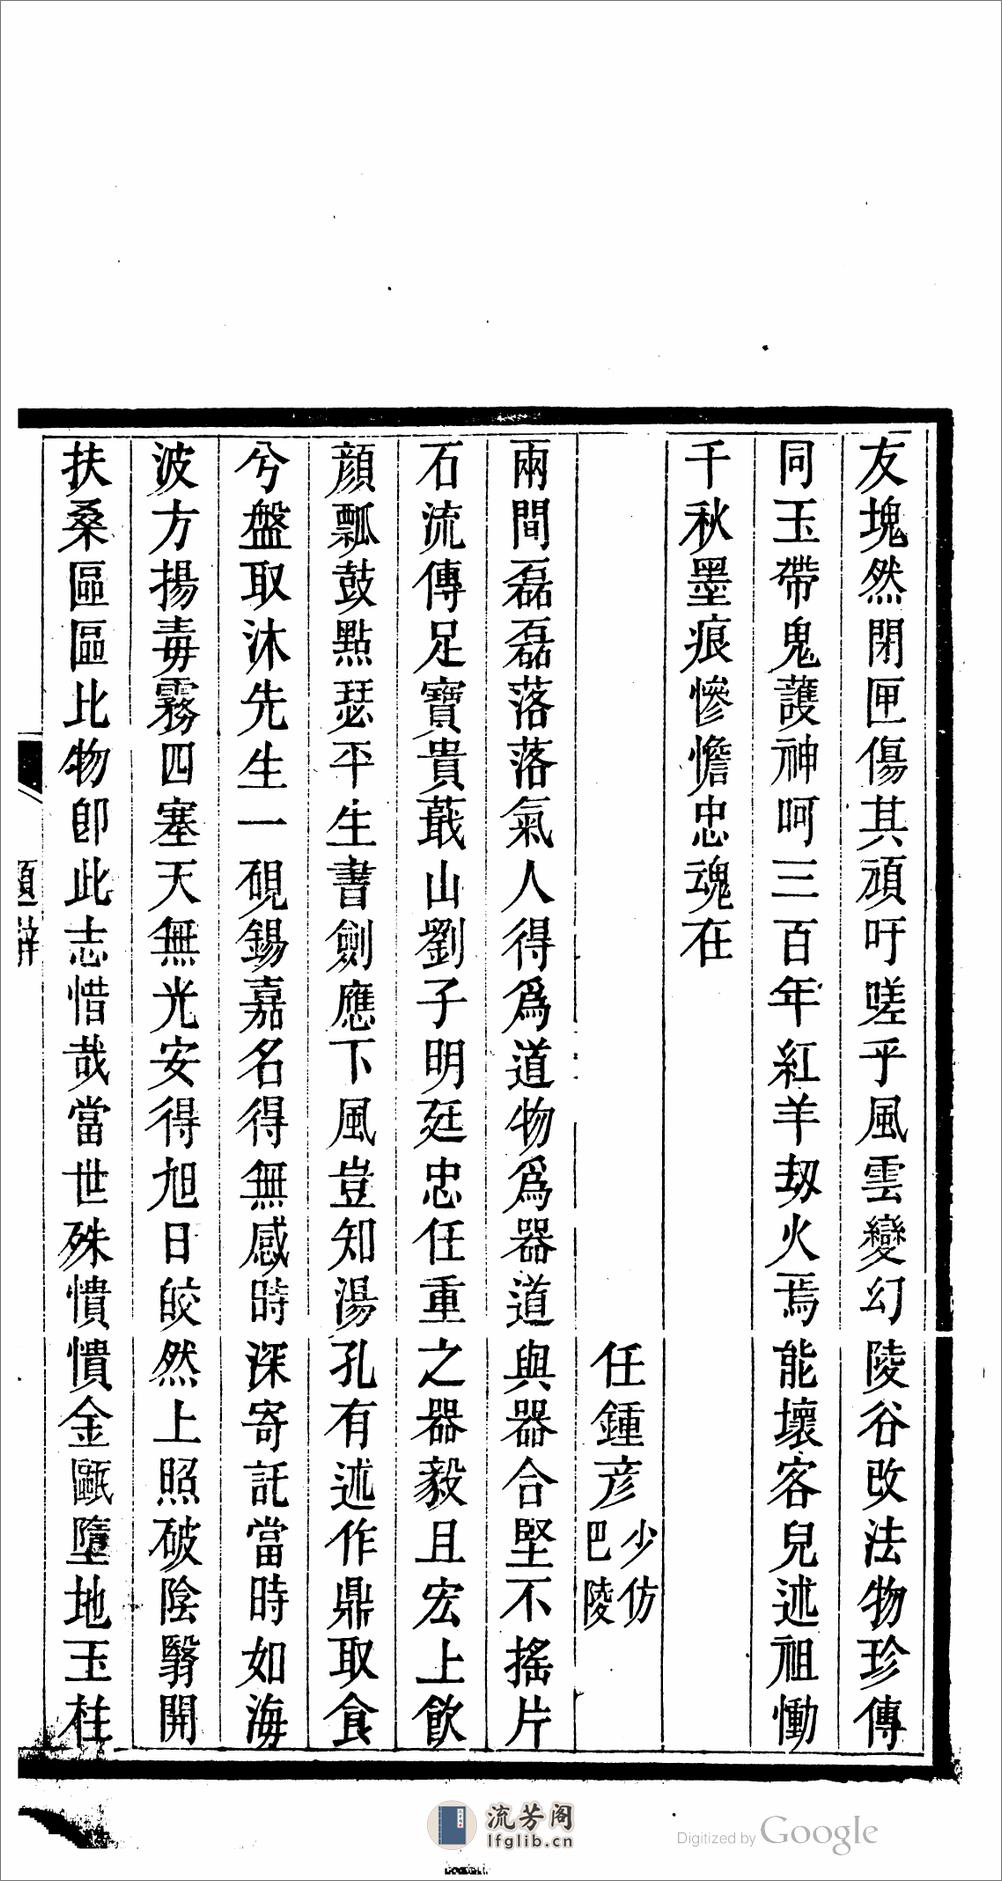 友塊然閉匣傷其頑吁嗟乎風雲變幻陵谷改法物珍傳
同玉帶鬼護神呵三百年紅羊刼火焉能壞客兒述祖慟
千秋墨痕慘憺忠魂在
任鍾彥少仿巴陵
兩間磊磊落落氣人得爲道物爲器道與器合堅不搖片
石流傳足寶貴蕺山劉子明廷忠任重之器毅且宏上飲
顏瓢鼓點瑟平生書劍應下風豈知湯孔有述作鼎取食
兮盤取沐先生一硯錫嘉名得無感時深寄託當時如海
波方揚毒霧四塞天無光安得旭日皎然上照破陰翳開
扶桑區區比物卽此志惜哉當世殊憒憒金甌墮地玉柱
題辭
流芳阁
lfglib.cn
Digitized by Google